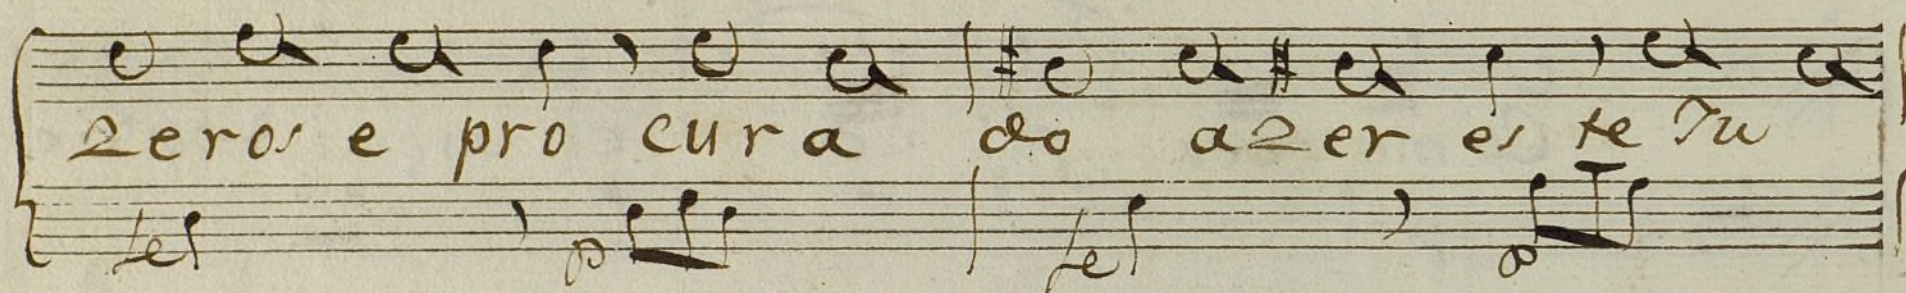 zeros e pro cura do azer es te Tu
fe p fe p